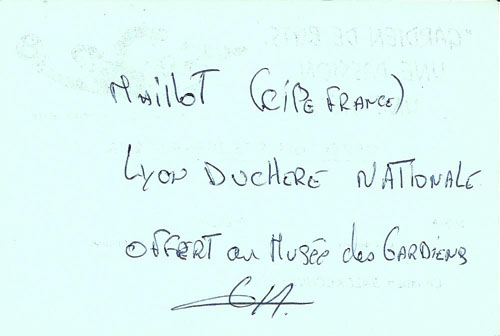 Maillot (CIPE FRANCE)
LYON DUCHERE NATIONALE
OFFERT au Musée des GARDIENS